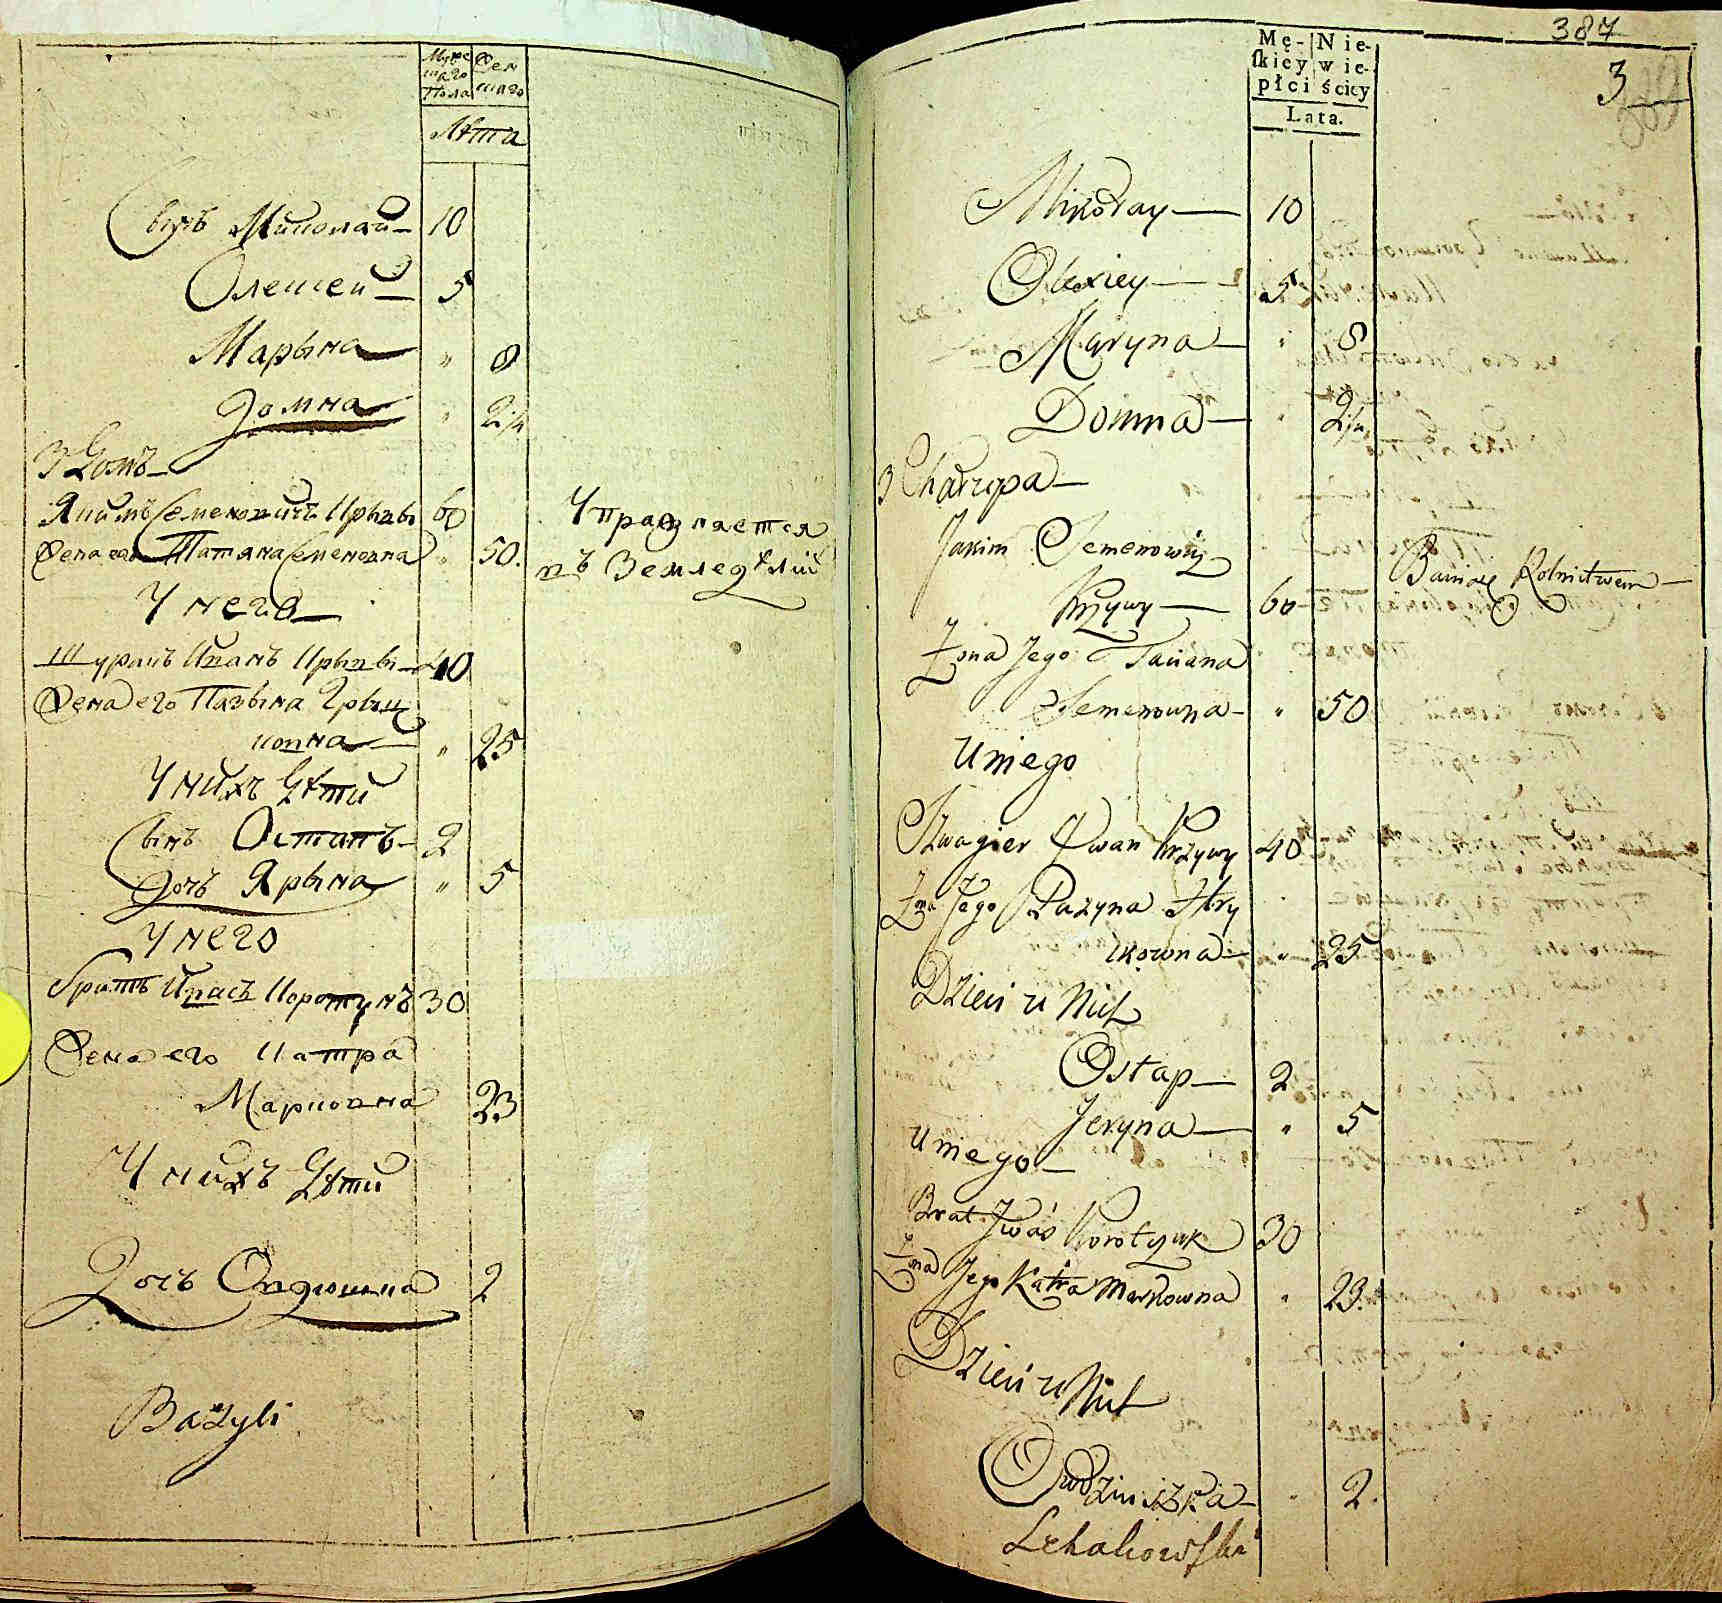 Муже
скаго
Пола
Жен
скаго
Лѣта
Сынъ Миколай 10
Олексей 5
Марына " 8
Домна " 2 1/2
3 Домъ
Якимъ Семеновичъ Крывы 60
Жена его Татяна Семеновна " 50.
Упражняется
въ Земледѣлий
У него
Шуринъ Иванъ Крывы 40
Жена его Пазына Грыц
ковна " 25
У нихъ Дѣти
Сынъ Остапъ 2
Дочь Ярына " 5
У него
братъ Ивась Коротунъ 30
Жена его Катра
Марковна 23
У нихъ Дѣти
Дочь Овдюшка 2
Bazyli
387
3
Mę-
skiey
płci
Nie-
wie-
ściey
Lata.
Mikołay 10
Olexiey 5
Maryna " 8
Domna " 2 1/2
3 Chałupa
Jakim Semenowicz
Krzywy 60
Bawiący Rolnictwem
Żona Jego Taciana
Semenowna " 50
U niego
Szwagier Iwan Krzywy 40
Żona Jego Pazyna Hry
ckowna " 25
Dzieci u Nich
Ostap 2
Jeryna " 5
U niego
Brat Iwaś Korotyuk 30
Żona Jego Katra Markowna " 23.
Dzieci u Nich
Owdziuszka " 2.